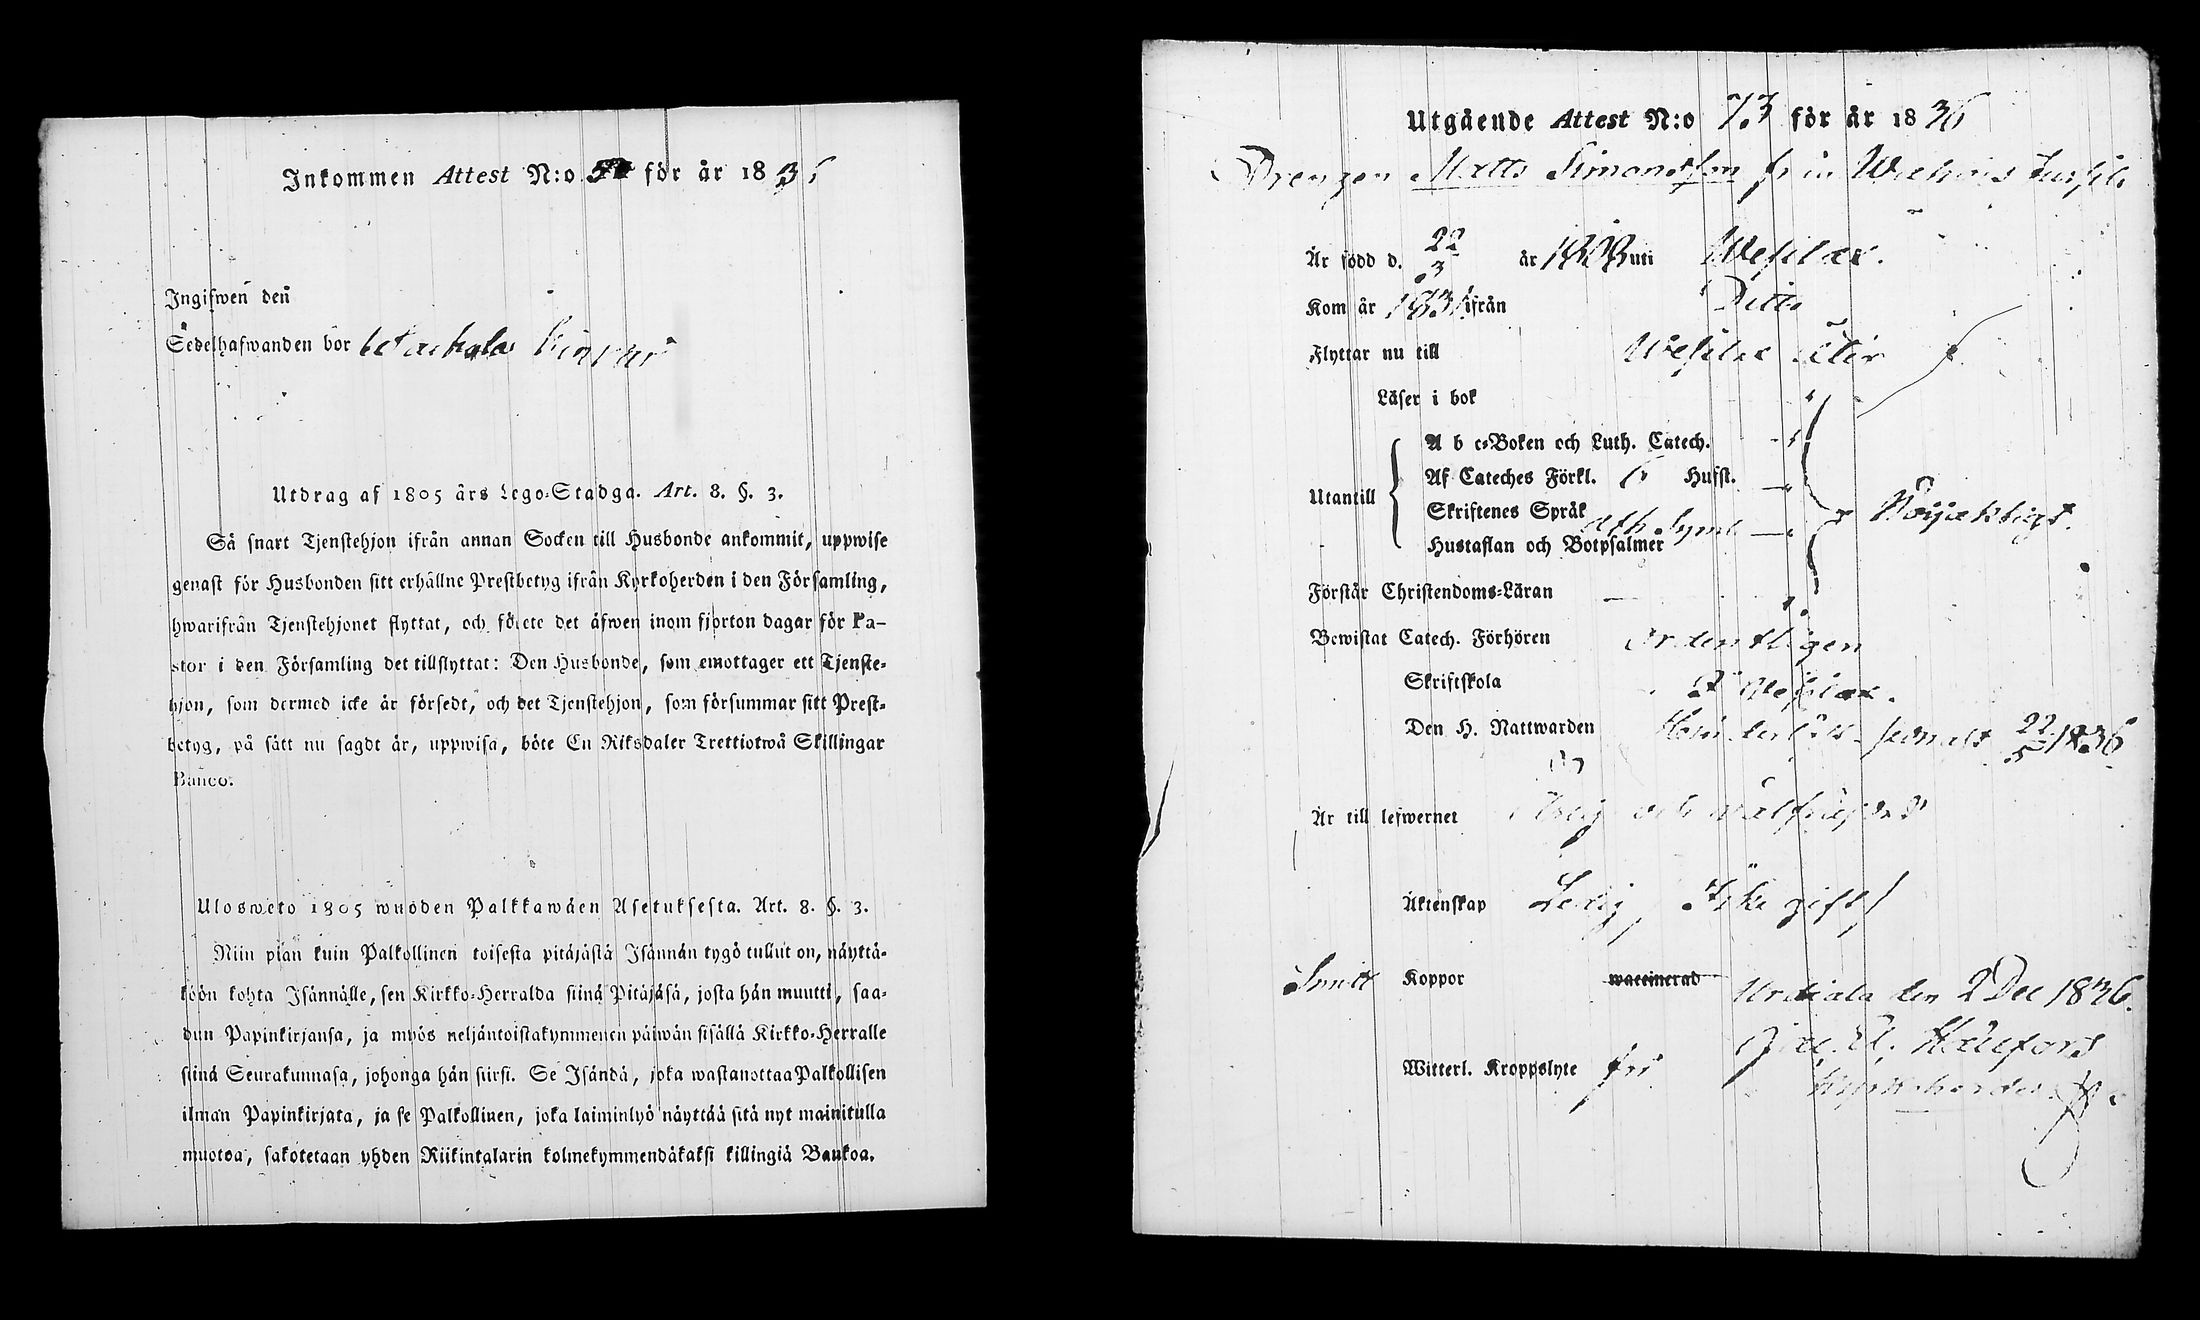 Inkommen Attest N:o för år 1836
Ingifwen den
Sedelhafwanden bor
Utdrag af 1805 års Lego-Stadga. Art. 8. §. 3.
Så snart Tjenstehjon ifrån annan Socken till Husbonde ankommit, uppwise
genast för Husbonden sitt erhållne Prestbetyg ifrån Kyrkoherden i den Församling,
hwarifrån Tjenstehjonet flyttat, och förete det äfwen inom fjorton dagar för Pa-
stor i den Församling det tillflyttat: Den Husbonde, som emottager ett Tjenste-
hjon, som dermed icke är försedt, och det Tjenstehjon, som försummar sitt Prest-
betyg, på sätt nu sagdt är, uppwisa, böte En Riksdaler Trettiotwå Skillingar
Banco.
Ulosweto 1805 wuoden Palkkawäen Asetuksesta. Art. 8. §. 3.
Niin pian kuin Palkollinen toisesta pitäjästä Isännän tygö tullut on, näyttä-
köön kohta Isännälle, sen Kirkko-Herralda siinä Pitäjäsä, josta hän muutti, saa-
dun Papinkirjansa, ja myös neljäntoistakymmenen päiwän sisällä Kirkko-Herralle
siinä Seurakunnasa, johonga hän siirsi. Se Isändä, joka wastanottaa Palkollisen
ilman Papinkirjata, ja se Palkollinen, joka laiminlyö näyttää sitä nyt mainitulla
muotoa, sakotetaan yhden Riikintalarin kolmekymmendäkaksi killingiä Bankoa.
Utgående Attest N:o 73 för år 1836
Drengen Matts Simonsson från
Är född d. 22/3 år 1808 uti Wesilax.
Kom år 1831 ifrån Ditto
Flyttar nu till Wesilax åter
Läser i bok
Utantill
A b c-Boken och Luth. Catech.
Af Cateches Förkl. 6 Hufst.
Skriftenes Språk
Ath. Symb.
Hustaflan och Botpsalmer
Förstår Christendoms-Läran
Bewistat Catech. Förhören ordentligen
Skriftskola i Wesilax.
Den H. Nattwarden senast 22/5 1836
Är till lefwernet ärlig och wälfrejdad
Äktenskap Ledig, Icke gift
Koppor waccinerad
Urdiala den 2 Dec 1836.
Witterl. Kroppslyte fri
Hällfors
Kyrkoherde